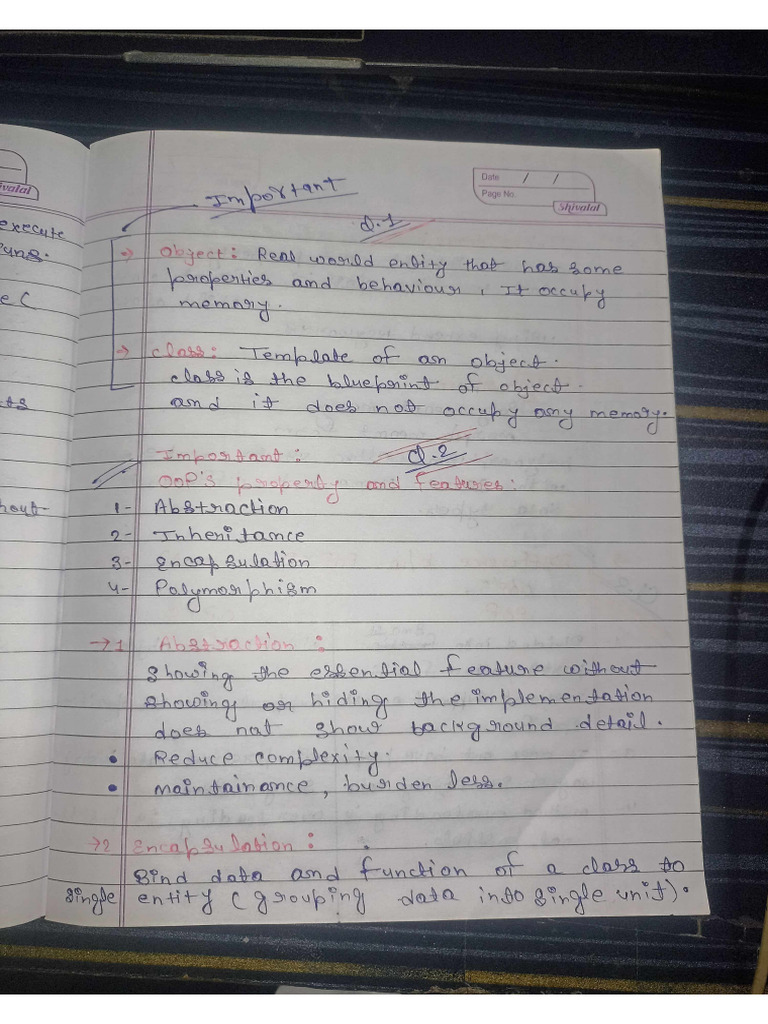 ivalal
execute
runs.
e C
ts
hout
Date / /
Page No.
Shivalal
Important
Q.1
→ Object: Real world entity that has some
properties and behaviour, It occupy
memory.
→ Class: Template of an object.
class is the blueprint of object.
and it does not occupy any memory.
Important: Q.2
OOP's property and features:
1- Abstraction
2- Inheritance
3- Encapsulation
4- Polymorphism
→1 Abstraction:
Showing the essential feature without
showing or hiding the implementation
does not show background detail.
• Reduce complexity.
• maintainance, burden less.
→2 Encapsulation:
Bind data and function of a class to
single entity (grouping data into single unit).